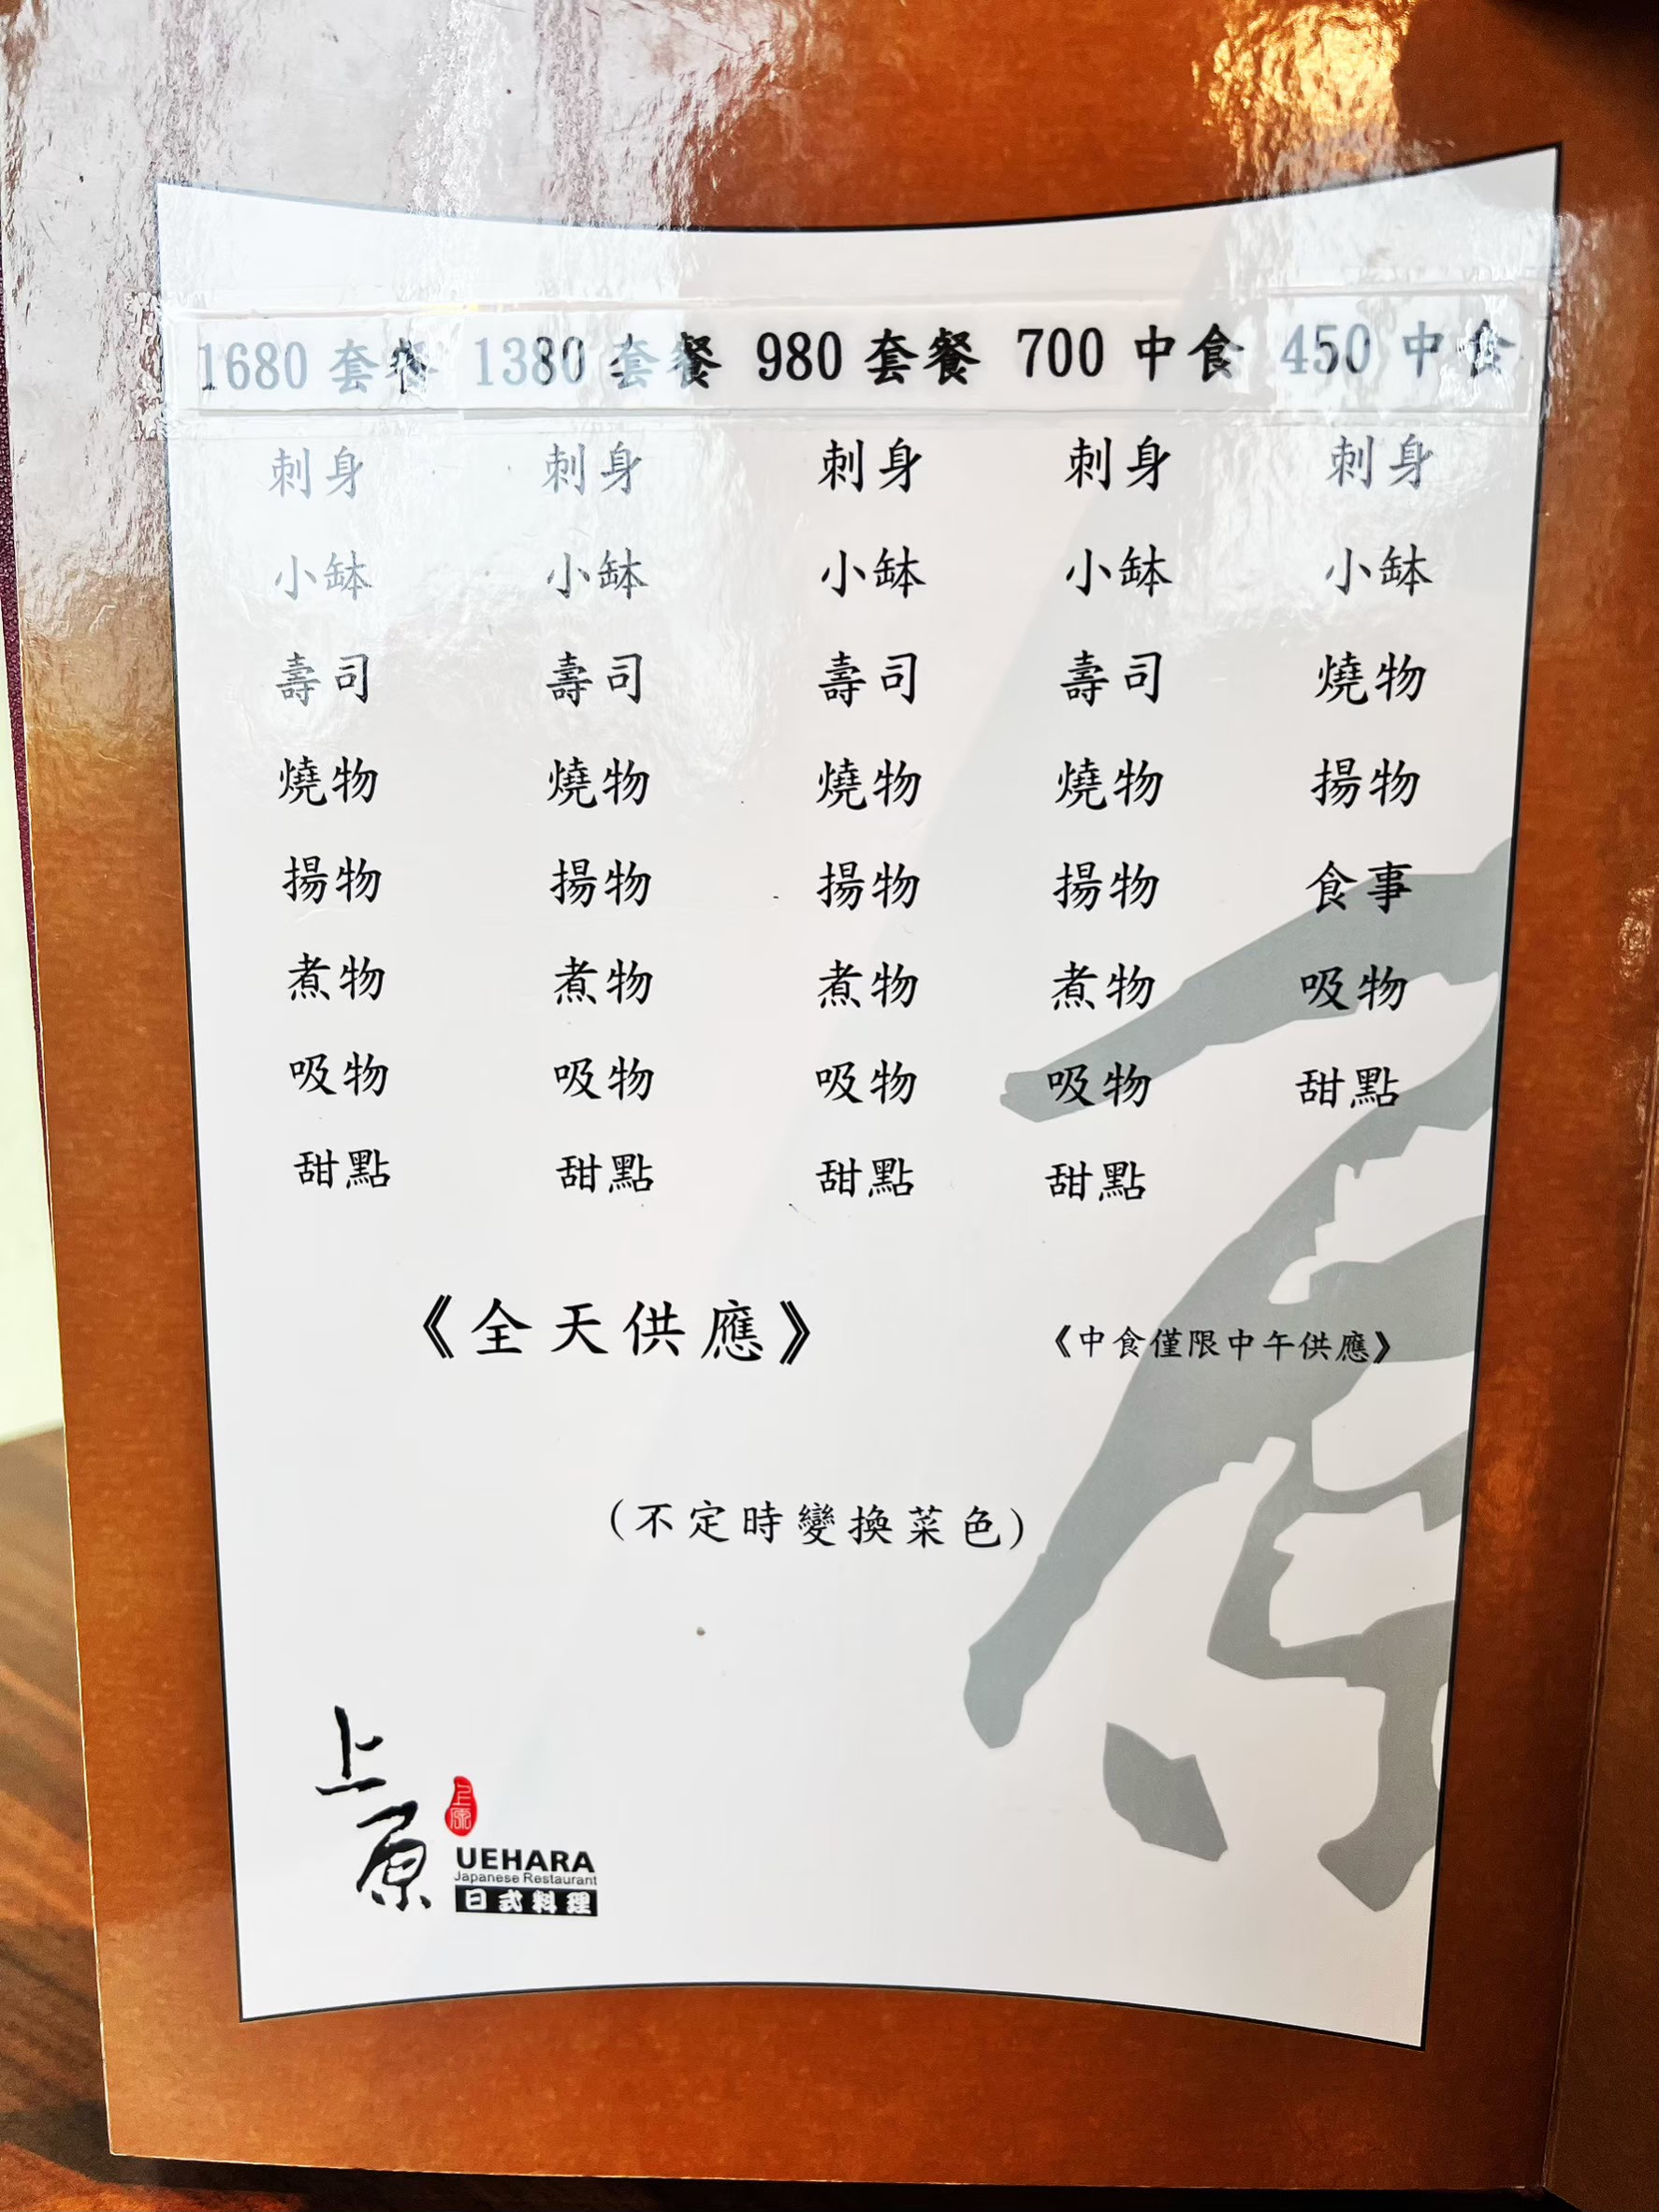 1680 套餐 1380 套餐 980 套餐 700 中食 450 中食
刺身 刺身 刺身 刺身 刺身
小缽 小缽 小缽 小缽 小缽
壽司 壽司 壽司 壽司 燒物
燒物 燒物 燒物 燒物 揚物
揚物 揚物 揚物 揚物 食事
煮物 煮物 煮物 煮物 吸物
吸物 吸物 吸物 吸物 甜點
甜點 甜點 甜點 甜點
《全天供應》 《中食僅限中午供應》
(不定時變換菜色)
上原
上原
UEHARA
Japanese Restaurant
日式料理